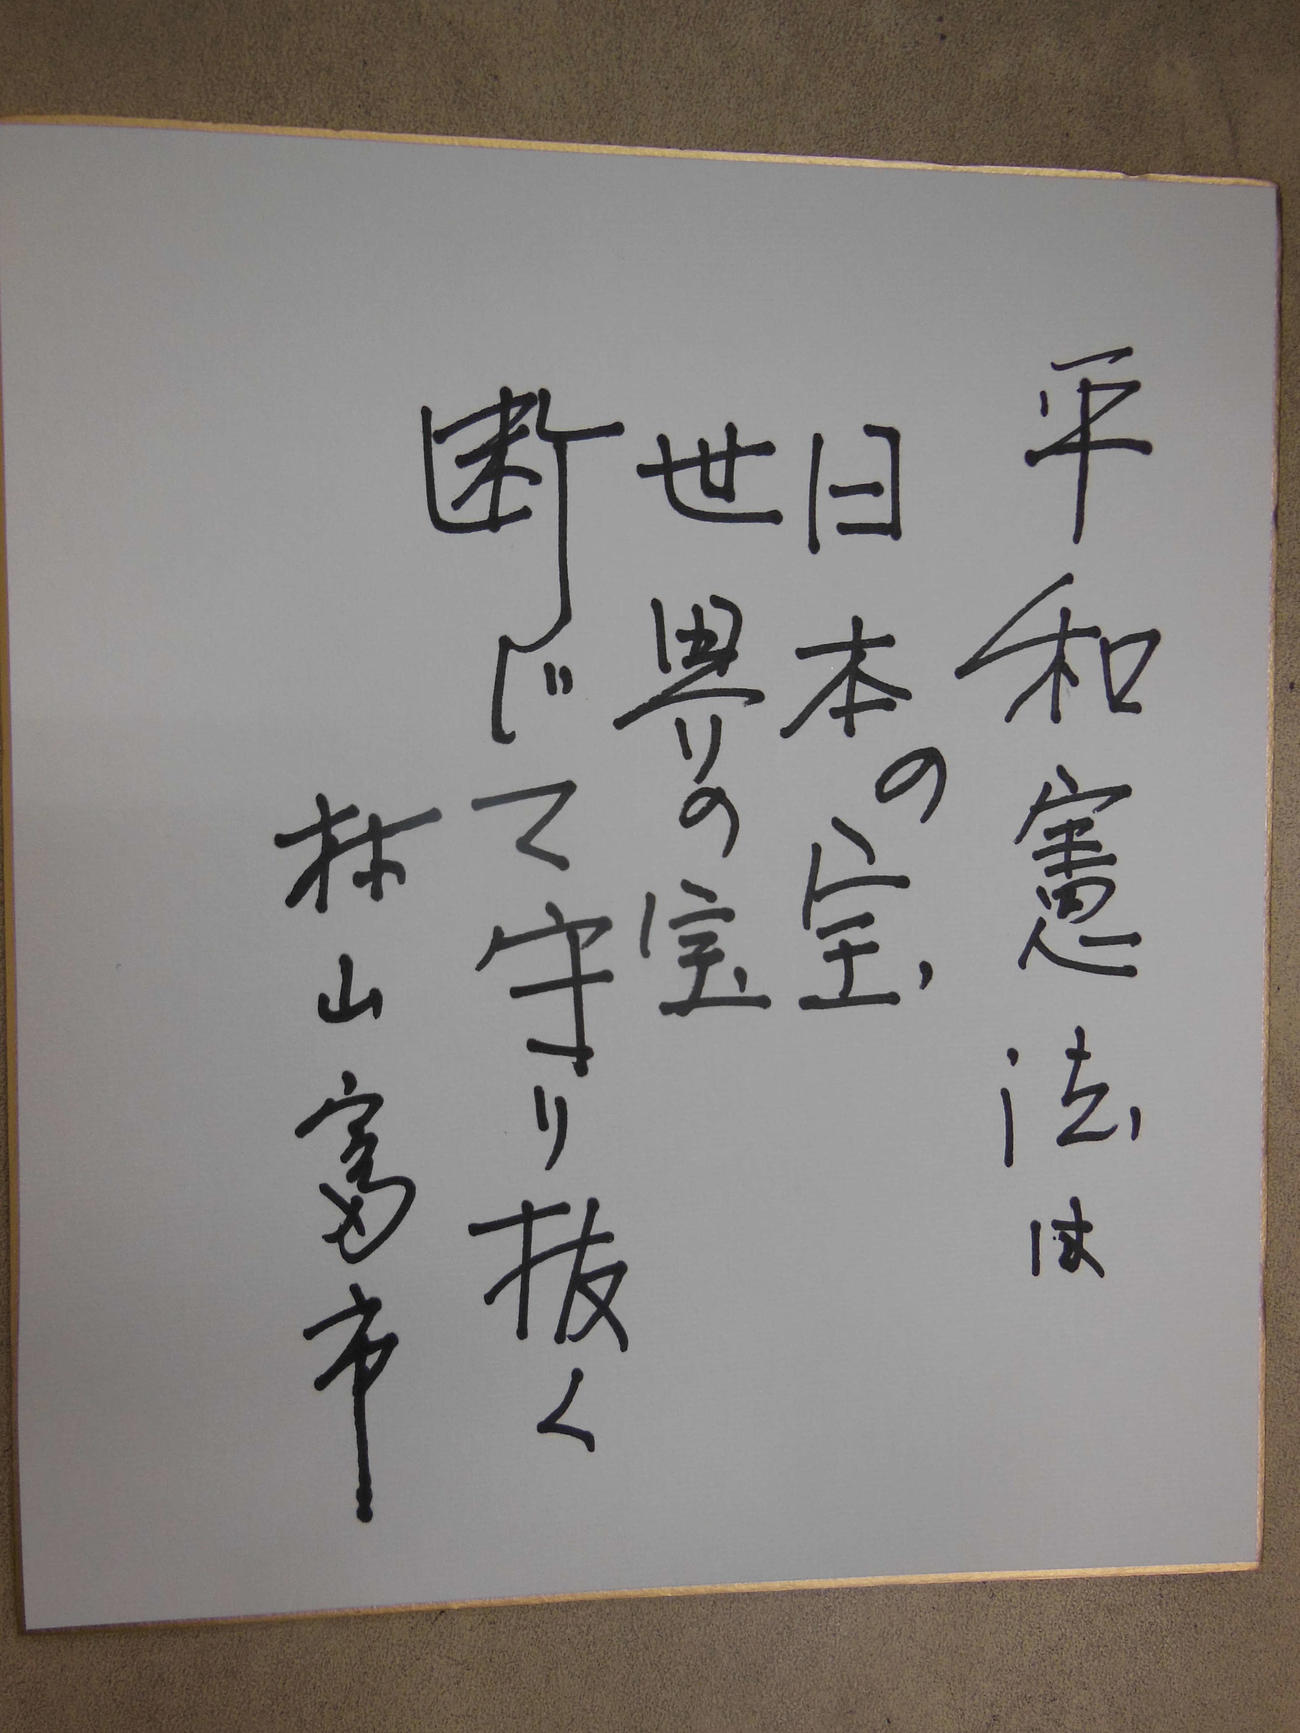 平和憲法は
日本の宝、
世界の宝
断じて守り抜く
村山富市